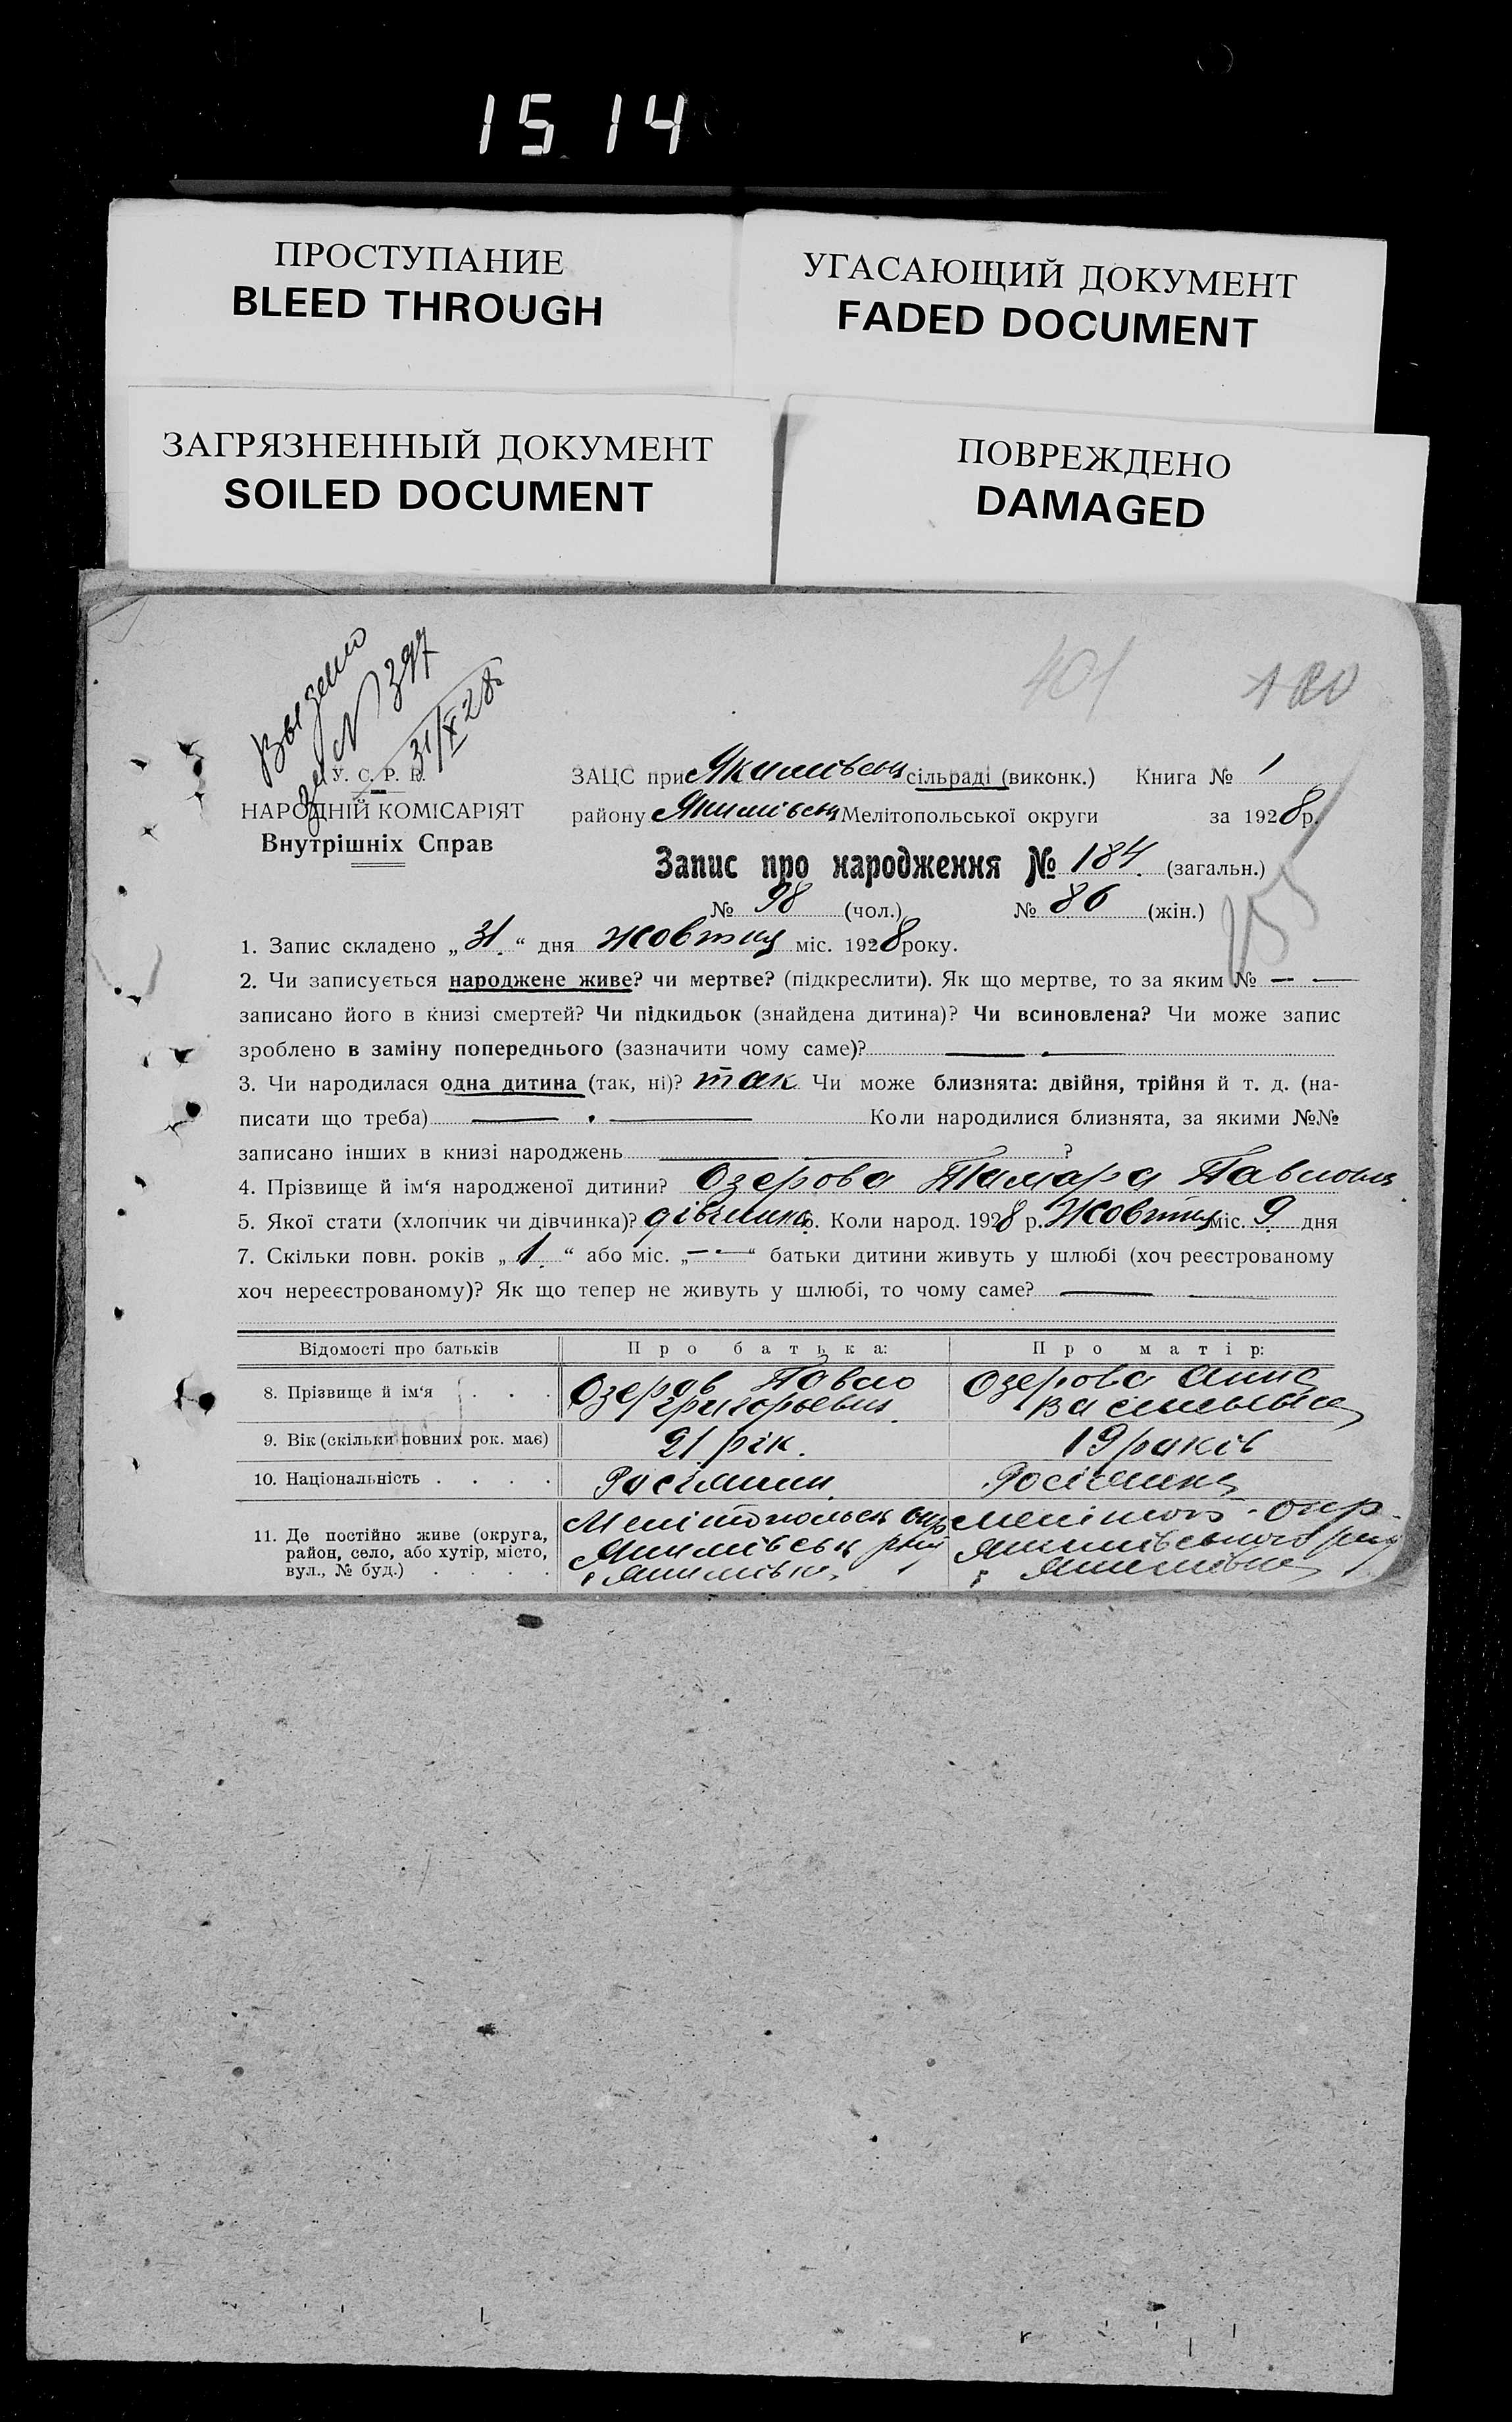 15 14
ПРОСТУПАНИЕ
BLEED THROUGH
УГАСАЮЩИЙ ДОКУМЕНТ
FADED DOCUMENT
ЗАГРЯЗНЕННЫЙ ДОКУМЕНТ
SOILED DOCUMENT
ПОВРЕЖДЕНО
DAMAGED
401
за N 397
31/X 28
У. С. Р. Р.
НАРОДНІЙ КОМІСАРІЯТ
Внутрішніх Справ
ЗАЦС при Якимівськ сільраді (виконк.) Книга № 1
району Якимівськ Мелітопольської округи за 1928 р.
Запис про народження № 184 (загальн.)
№ 98 (чол.) № 86 (жін.)
1. Запис складено „ 31 “ дня жовтня міс. 1928 року.
2. Чи записується народжене живе? чи мертве? (підкреслити). Як що мертве, то за яким № — —
записано його в книзі смертей? Чи підкидьок (знайдена дитина)? Чи всиновлена? Чи може запис
зроблено в заміну попереднього (зазначити чому саме)? — . —
3. Чи народилася одна дитина (так, ні)? так Чи може близнята: двійня, трійня й т. д. (на-
писати що треба) — . — Коли народилися близнята, за якими №№
записано інших в книзі народжень — — ?
4. Прізвище й ім‘я народженої дитини? Озерова Тамара Павловна
5. Якої стати (хлопчик чи дівчинка)? дівчинка 6. Коли народ. 1928 р. Жовтня міс. 9 дня
7. Скільки повн. років „ 1 “ або міс. „ — - “ батьки дитини живуть у шлюбі (хоч реєстрованому
хоч нереєстрованому)? Як що тепер не живуть у шлюбі, то чому саме? — —
Відомості про батьків Про батька: Про матір:
8. Прізвище й ім‘я . . . Озеров Павло Озерова Анна
Григорьевич Васильевна
9. Вік (скільки повних рок. має) 21 рік. 19 років
10. Національність . . . . Росіянин Росіянка
11. Де постійно живе (округа, Мелітопольськ окр Мелітоп - окр
район, село, або хутір, місто, Якимівськ рай Якимівського рай
вул., № буд.) . . . . Якимівка Якимівка